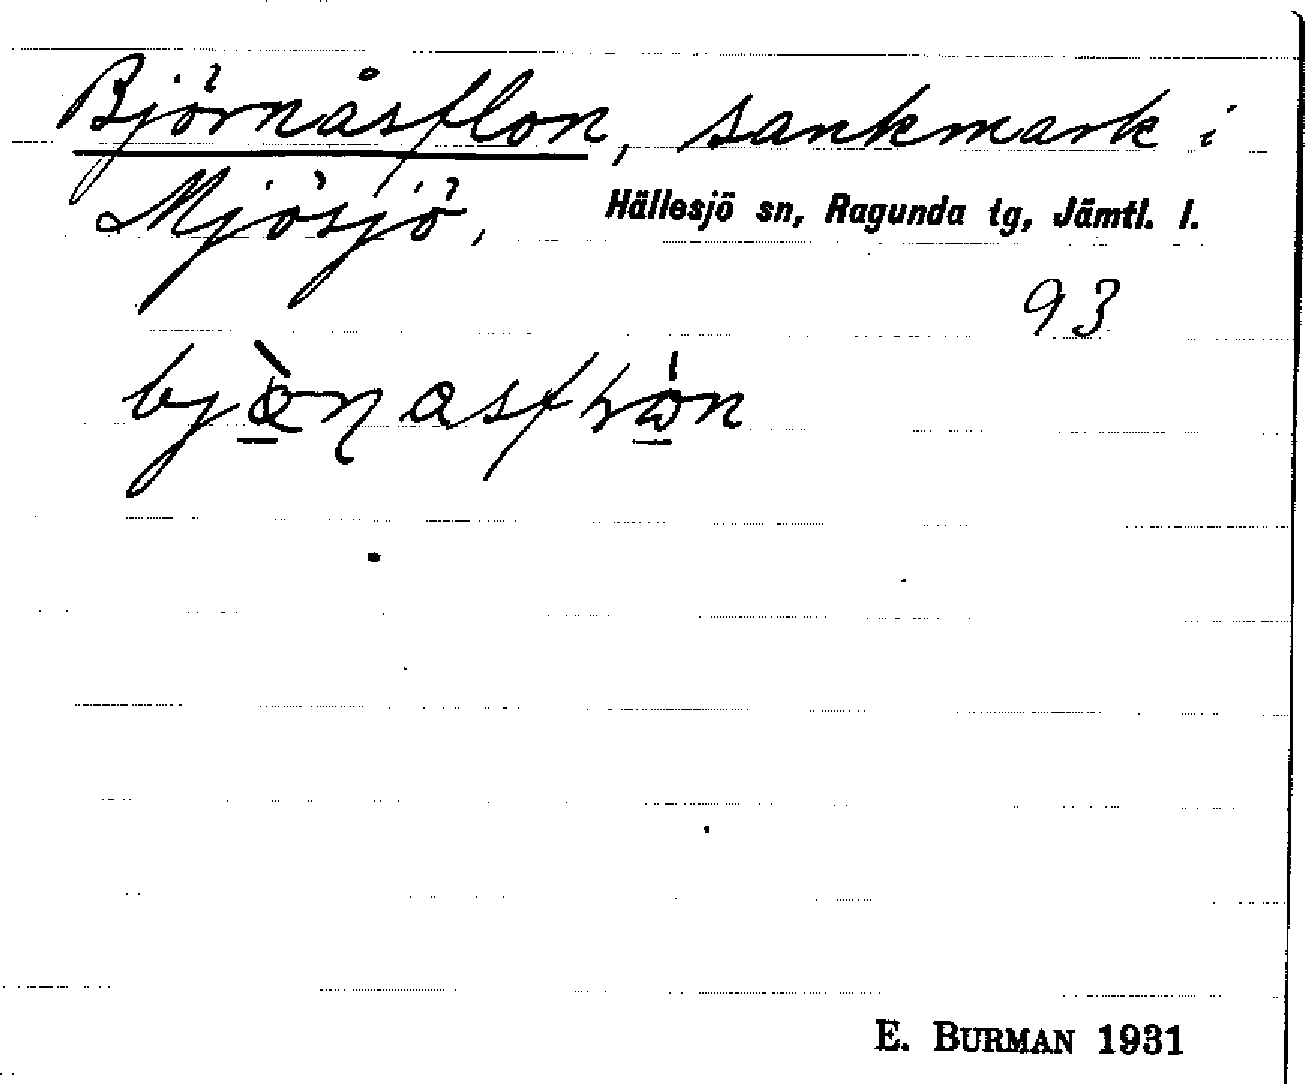 Björnåsflon, sankmark i
Mjösjö, Hällesjö sn, Ragunda tg, Jämtl. l.
93
E. BURMAN 1931